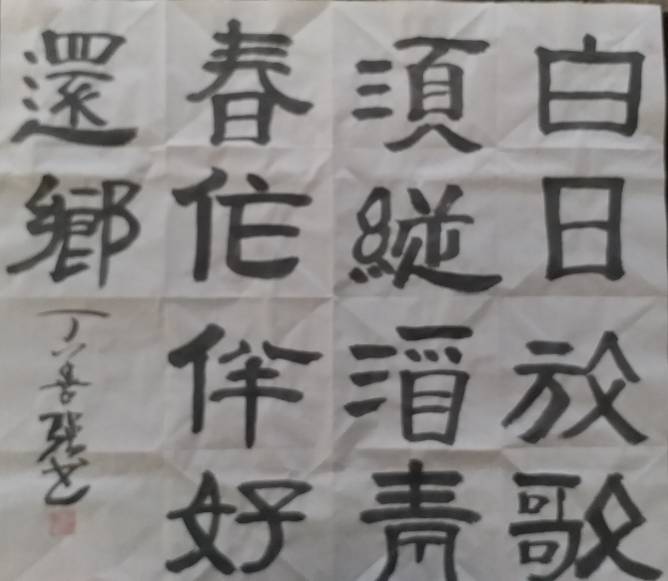 白日放歌
須縱酒青
春作伴好
還鄉